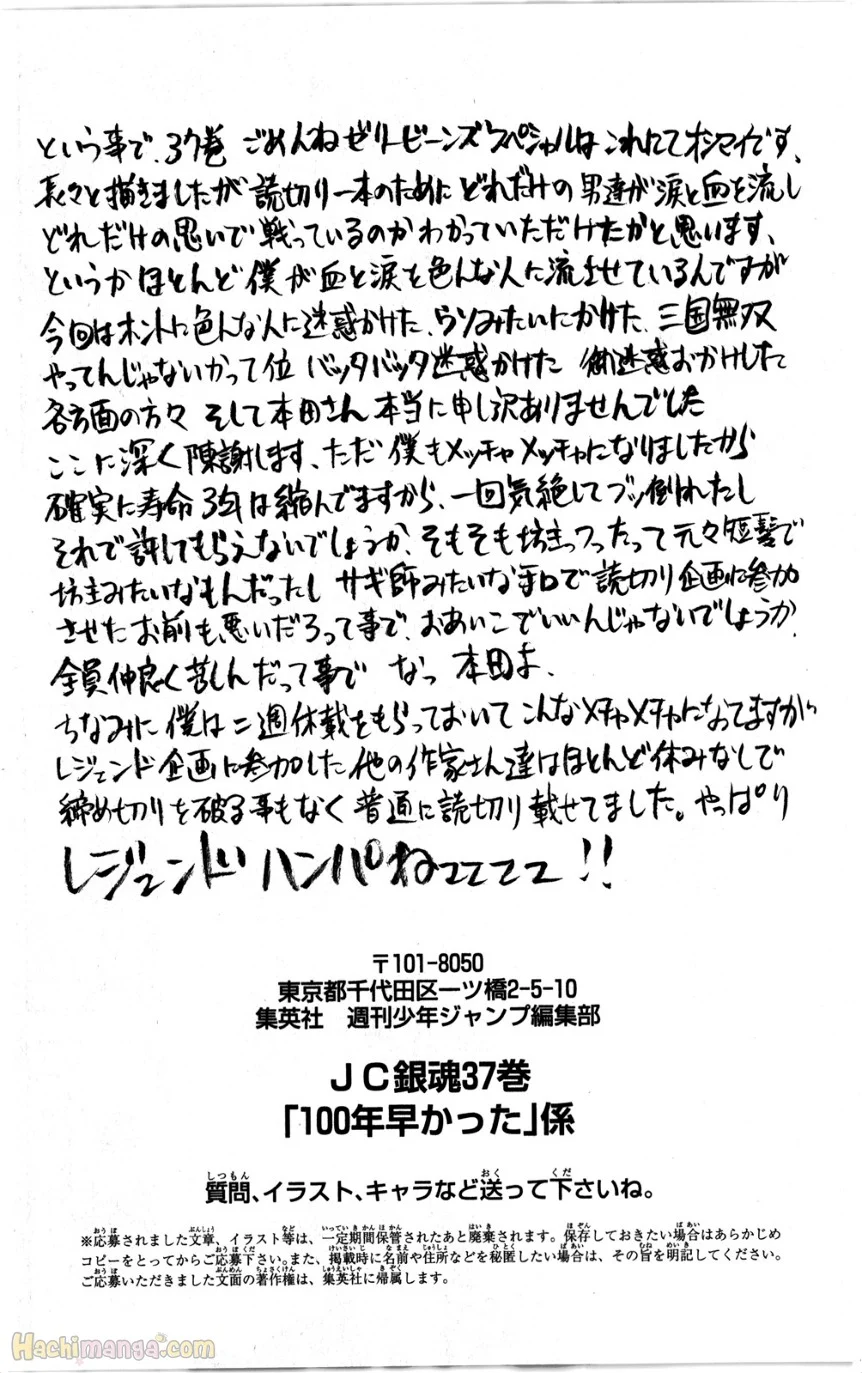 という事で、37巻 ごめんねゼリービーンズスペシャルはこれにてオシマイです、
長々と描きましたが読切り一本のためにどれだけの男達が涙と血を流し
どれだけの思いで戦っているのかわかっていただけたかと思います、
というかほとんど僕が血と涙を色んな人に流させているんですが
今回はホントに色んな人に迷惑かけた、ウソみたいにかけた、三国無双
やってんじゃないかって位 バッタバッタ迷惑かけた 御迷惑おかけした
各方面の方々 そして本田さん本当に申し訳ありませんでした
ここに深く陳謝します、ただ僕もメッチャメッチャになりましたから
確実に寿命3年は縮んでますから、一回気絶してブッ倒れたし
それで許してもらえないでしょうか、そもそも坊主っつったって元々短髪で
坊主みたいなもんだったし サギ師みたいな手口で読切り企画に参加
させたお前も悪いだろって事で、おあいこでいいんじゃないでしょうか、
全員仲良く苦しんだって事で なっ 本田よ、
ちなみに僕は二週休載をもらっておいてこんなメチャメチャになってますが
レジェンド企画に参加した他の作家さん達はほとんど休みなしで
締め切りを破る事もなく普通に読切り載せてました。やっぱり
レジェンドハンパねェェェェ!!
〒101-8050
東京都千代田区一ツ橋2-5-10
集英社 週刊少年ジャンプ編集部
JC銀魂37巻
「100年早かった」係
質問、イラスト、キャラなど送って下さいね。
※応募されました文章、イラスト等は、一定期間保管されたあと廃棄されます。保存しておきたい場合はあらかじめ
コピーをとってからご応募下さい。また、掲載時に名前や住所などを秘匿したい場合は、その旨を明記してください。
ご応募いただきました文面の著作権は、集英社に帰属します。
Hachimanga.com